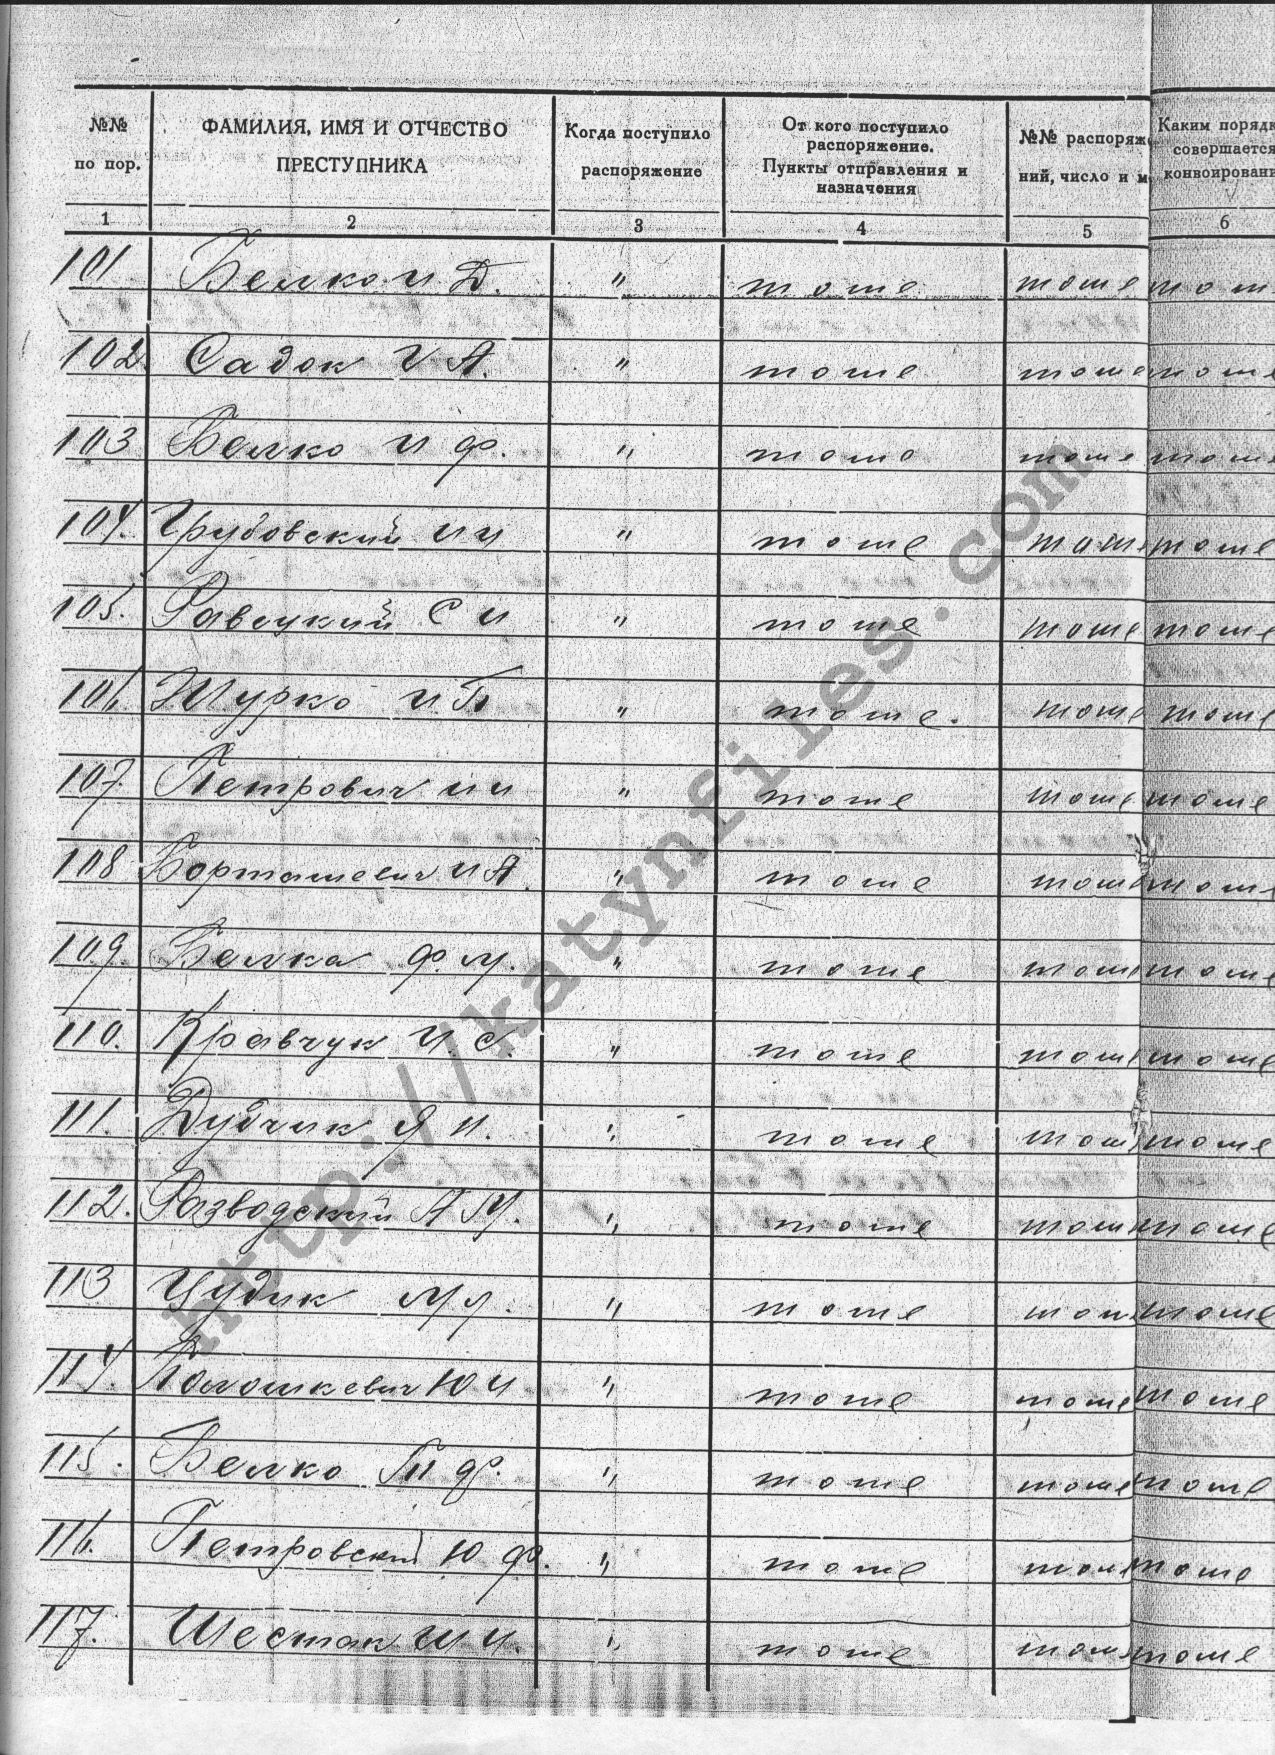 №№ по пор. ФАМИЛИЯ, ИМЯ И ОТЧЕСТВО ПРЕСТУПНИКА Когда поступило распоряжение От кого поступило распоряжение. Пункты отправления и назначения №№ распоряж ний, число и м Каким порядк совершается конвоировани
1 2 3 4 5 6
101 Белко И Д. " тоже тоже то ж
102. Садок И А. " тоже тоже тоже
103 Белко И Ф. " тоже тоже тоже
104. Грубовский И И " тоже тоже тоже
105. Равецкий С И " тоже тоже тоже
106. Шурко И П " тоже. тоже тоже
107. Петрович И И " тоже тоже тоже
108 Борташевич И А. " тоже тоже тоже
109. Белка Ф. М. " тоже тоже тоже
110. Кравчук И. С. " тоже тоже тоже
111. Дубчик Я И. " тоже тож тоже
112. Разводский А М. " тоже тож тоже
113 Цудик М Л. " тоже тож тоже
114. Еолошкевич Ю И " тоже тоже тоже
115. Белко П Ф. " тоже тоже тоже
116. Петровский Ю Ф. " тоже тоже тоже
117. Шестак И И. " тоже тож тоже
http://katynfiles.com